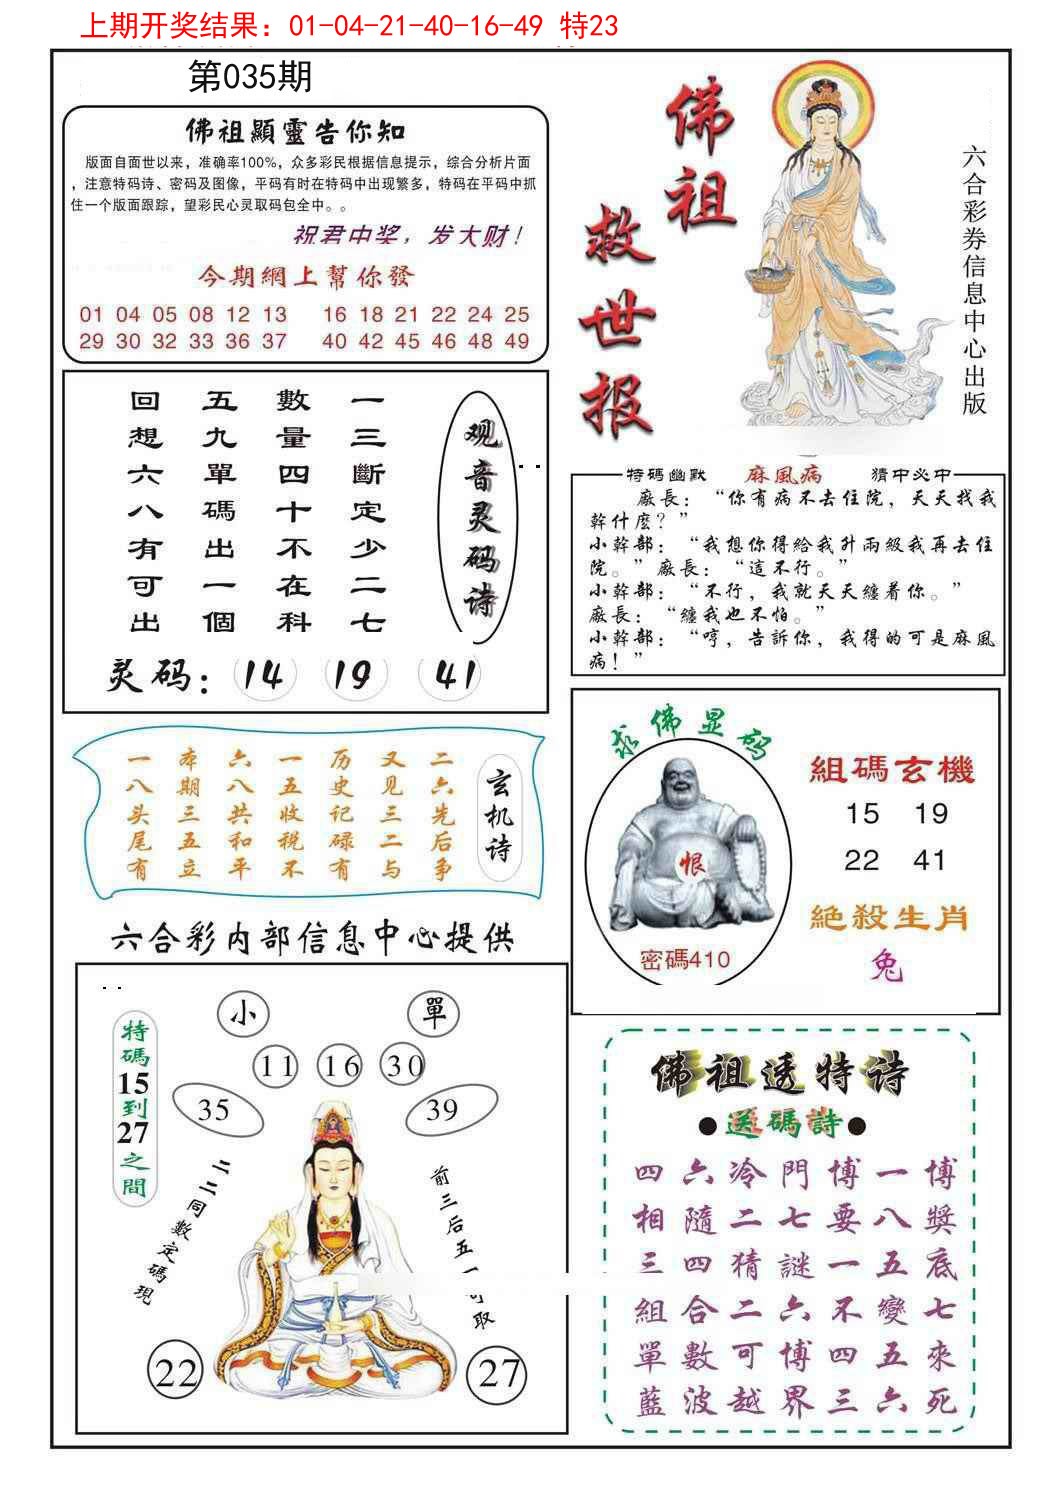 上期开奖结果：01-04-21-40-16-49 特23
第035期
佛祖顯靈告你知
版面自面世以来，准确率100%，众多彩民根据信息提示，综合分析片面
，注意特码诗、密码及图像，平码有时在特码中出现繁多，特码在平码中抓
住一个版面跟踪，望彩民心灵取码包全中。。
祝君中奖，发大财！
今期網上幫你發
01 04 05 08 12 13 16 18 21 22 24 25
29 30 32 33 36 37 40 42 45 46 48 49
佛祖
救世报
六合彩券信息中心出版
观音灵码诗
一三斷定少二七
數量四十不在科
五九單碼出一個
回想六八有可出
灵码：14 19 41
特碼幽默 麻風病 猜中必中
廠長：“你有病不去住院，天天找我
幹什麼？”
小幹部：“我想你得給我升兩級我再去住
院。”廠長：“這不行。”
小幹部：“不行，我就天天纏着你。”
廠長：“纏我也不怕。”
小幹部：“哼，告訴你，我得的可是麻風
病！”
玄机诗
二六先后争
又见三二与
历史记碌有
一五收税不
六八共和平
本期三五立
一八头尾有
求佛显码
恨
密碼410
組碼玄機
15 19
22 41
絕殺生肖
兔
六合彩内部信息中心提供
小 單
11 16 30
35 39
特碼15到27之間
二二同數定碼現
前三后五一可取
22 27
佛祖透特诗
●送碼詩●
四六冷門博一博
相隨二七要八獎
三四猜謎一五底
組合二六不變七
單數可博四五來
藍波越界三六死